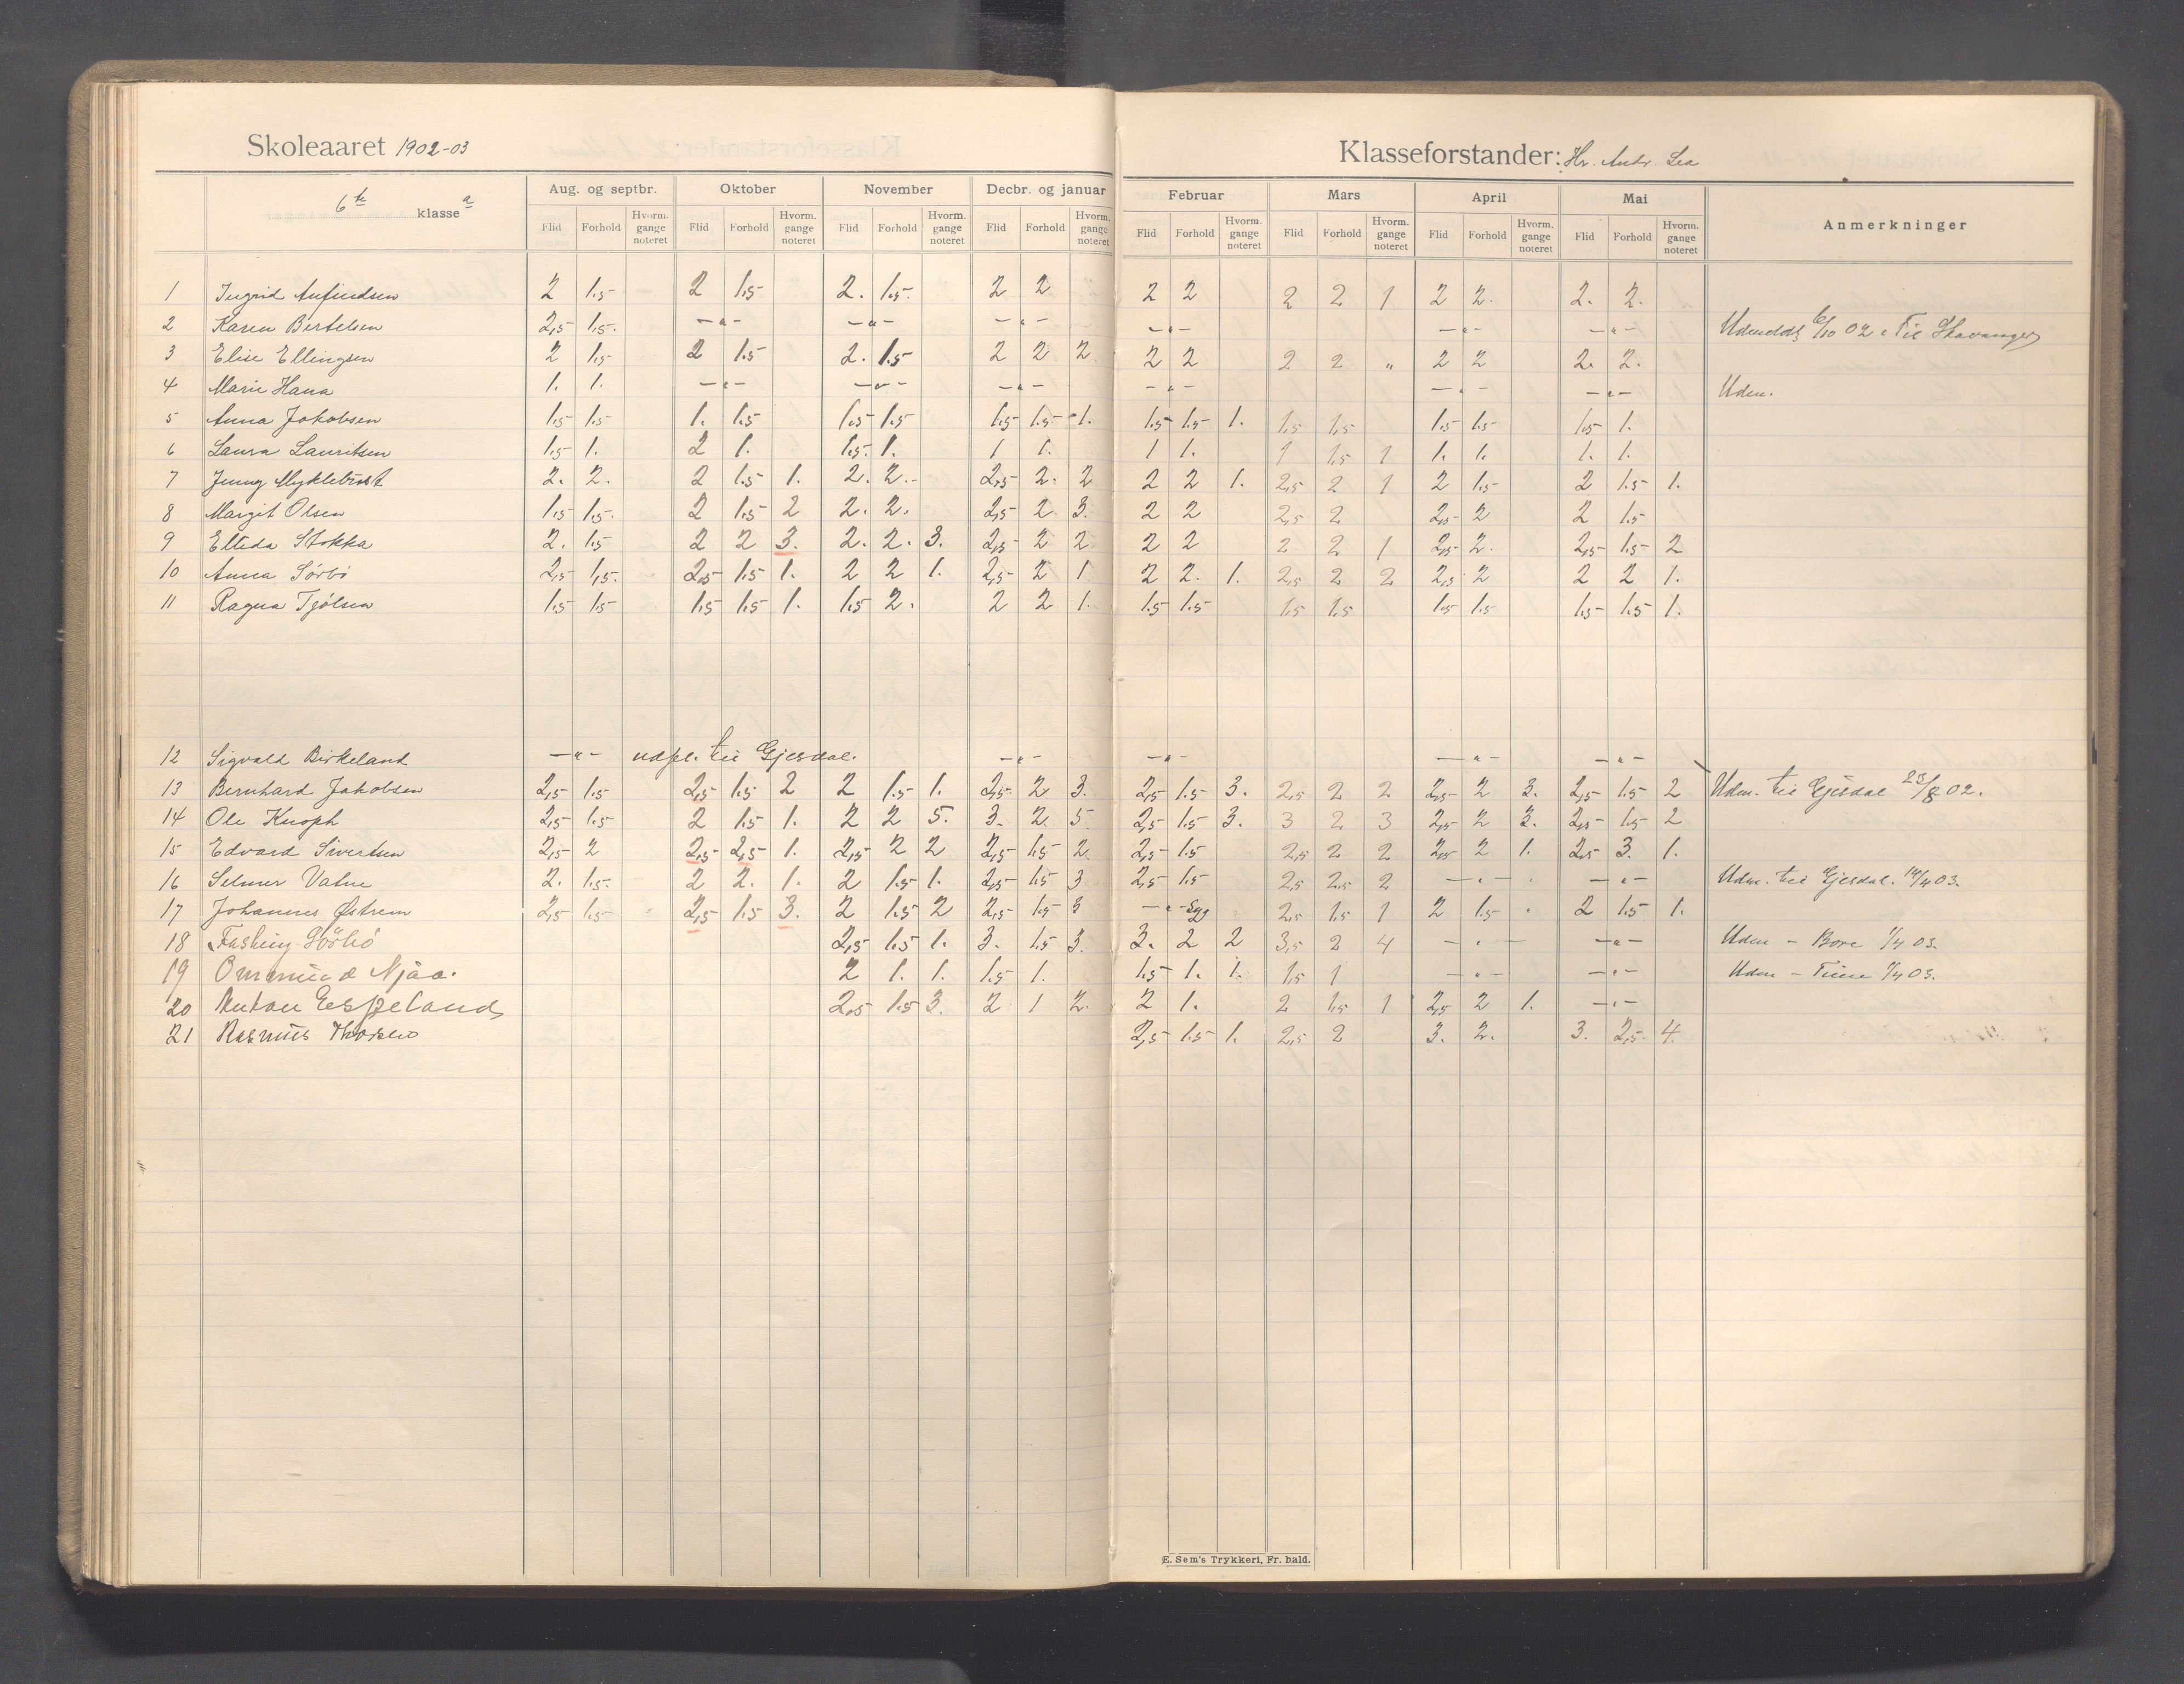 Skoleaaret 1902-03
Klasseforstander: Hr. Andr. Lea
6te klasse a
Aug. og septbr. Oktober November Decbr. og januar Februar Mars April Mai Anmerkninger
Flid Forhold Hvorm. gange noteret Flid Forhold Hvorm. gange noteret Flid Forhold Hvorm. gange noteret Flid Forhold Hvorm. gange noteret Flid Forhold Hvorm. gange noteret Flid Forhold Hvorm. gange noteret Flid Forhold Hvorm. gange noteret Flid Forhold Hvorm. gange noteret
1 Ingrid Anfindsen 2 1.5 2 1.5 2. 1.5. 2 2 2 2 2 2 1 2 2. 2. 2.
2 Karen Bertelsen 2,5 1,5. -"- -"- -"- -"- -"- -"- 6/10 02 Til Stavanger
3 Elise Ellingsen 2 1.5 2 1.5 2. 1.5 2 2 2. 2 2 2 2 " 2 2 2. 2.
4 Marie Hana 1. 1. -"- -"- -"- -"- -"- -"- Uden.
5 Anna Jakobsen 1.5 1.5 1. 1.5 1.5 1.5 1.5 1.5 1. 1.5 1.5 1. 1.5 1.5 1.5 1.5 1.5 1.
6 Laura Lauritsen 1.5 1. 2 1. 1.5. 1. 1 1. 1 1. 1 1.5 1 1. 1. 1. 1.
7 Jenny Myklebust 2. 2. 2 1.5 1. 2. 2. 2,5 2. 2 2 2 1. 2,5 2 1 2 1.5 2 1.5 1.
8 Margit Olsen 1.5 1.5. 2 1.5 2 2. 2. 2,5 2 3. 2 2 2,5 2 2,5 2 2 1.5
9 Elleda Stokka 2. 1.5 2 2 3. 2. 2. 3. 2,5 2 2 2 2 2 2 1 2,5 2. 2,5 1.5 2
10 Anna Sörbö 2,5 1,5. 2,5 1.5 1. 2 2 1. 2,5 2 1 2 2. 1. 2,5 2 2 2,5 2 2 2 1.
11 Ragna Tjölsen 1.5 1.5 1.5 1.5 1. 1.5 2. 2 2 1. 1.5 1.5 1.5 1.5 1.5 1.5 1.5 1.5 1.
12 Sigvald Birkeland -"- udfl. til Gjesdal. -"- -"- -"- -"-
13 Bernhard Jakobsen 2,5 1.5 2,5 1.5 2 2 1.5 1. 2,5. 2 3. 2,5 1.5 3. 2,5 2 2 2,5 2 3. 2,5 1.5 2 Uden. til Gjesdal 23/8 02.
14 Ole Knoph 2,5 1.5 2 1.5 1. 2 2 5. 3. 2. 5 2,5 1.5 3. 3 2 3 2,5 2 3. 2,5 1.5 2
15 Edvard Sivertsen 2,5 2 2,5 2,5 1. 2,5 2 2 2,5 1.5 2. 2,5 1.5 2,5 2 2 2,5 2 1. 2.5 3. 1.
16 Selmer Vatne 2. 1.5. 2 2. 1. 2 1.5 1. 2,5 1.5 3 2,5 1.5 2,5 2,5 2 -"- -"- Uden. til Gjesdal. 14/4 03.
17 Johannes Østrem 2,5 1.5 2,5 1.5 3. 2 1.5 2 2,5 1.5 3 -"- Syg 2,5 1.5 1 2 1.5 2 1.5 1.
18 Sörbö 2,5 1.5 1. 3. 1.5 3. 3. 2 2 3,5 2 4 -"- -"- Uden - Bore 1/4 03.
19 Ommund Njaa. 2 1. 1. 1.5 1. 1.5 1. 1. 1.5 1 -"- -"- Uden - Time 1/4 03.
20 Espeland 2,5 1.5 3. 2 1 2. 2 1. 2 1.5 1 2,5 2 1. -"-
21 Rasmus 2,5 1.5 1. 2,5 2 3. 2. 3. 2,5 4.
E. Sem's Trykkeri, Fr. hald.